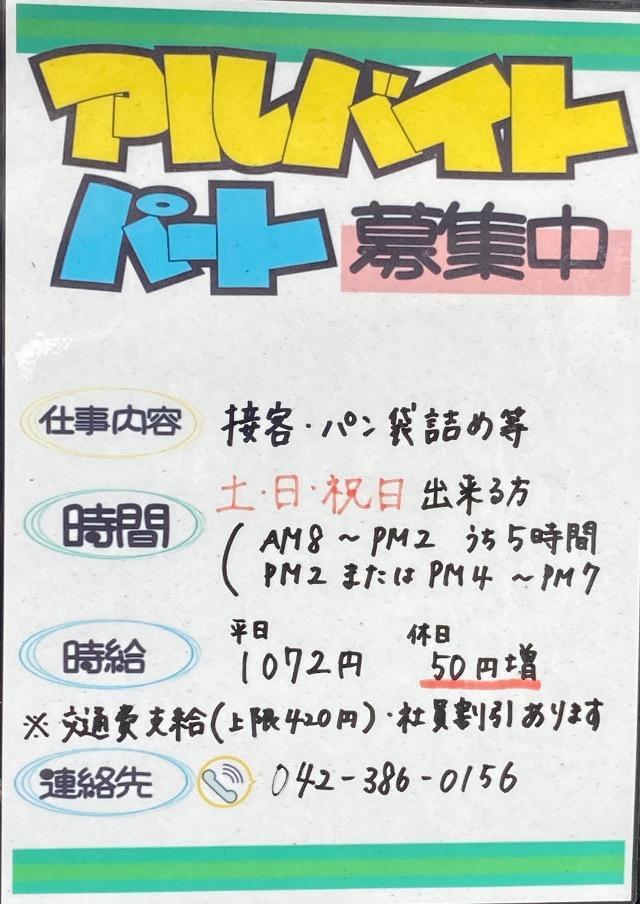 アルバイト
パート 募集中
仕事内容 接客・パン袋詰め等
時間 土・日・祝日 出来る方
(AM8〜PM2 うち5時間
PM2 または PM4 〜PM7
平日 休日
時給 1072円 50円増
※交通費支給(上限420円)・社員割引あります
連絡先 042-386-0156